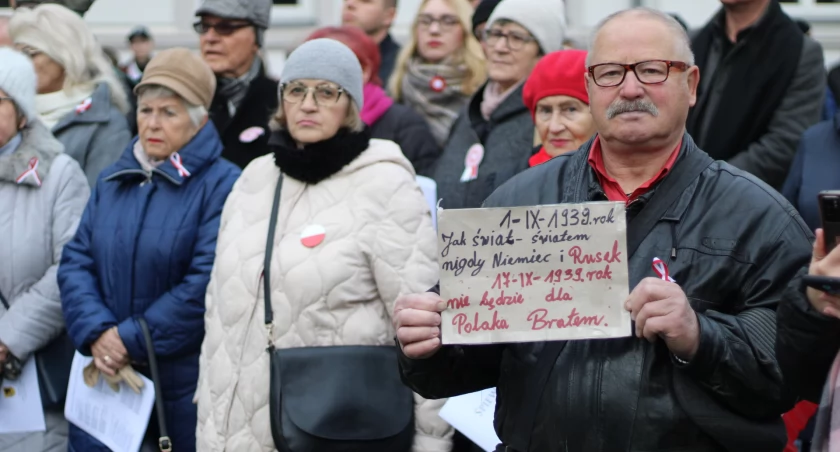 1-IX-1939.rok
Jak świat - światem
nigdy Niemiec i Rusek
17-IX-1939.rok
nie będzie dla
Polaka Bratem.